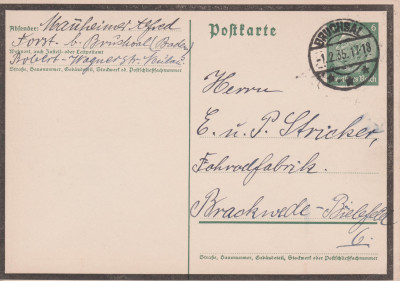 Absender: Mauheimer Alfred
Forst b. Bruchsal (Baden)
Wohnort, auch Zustell- oder Leitpostamt
Robert-Wagnerstr.
Straße, Hausnummer, Gebäudeteil, Stockwerk od. Postschließfachnummer
Postkarte
BRUCHSAL
-1.2.35.17-18
6
E. u. P. Stricker,
Fahrradfabrik.
Brackwede-Bielefeld
6.
Straße, Hausnummer, Gebäudeteil, Stockwerk oder Postschließfachnummer